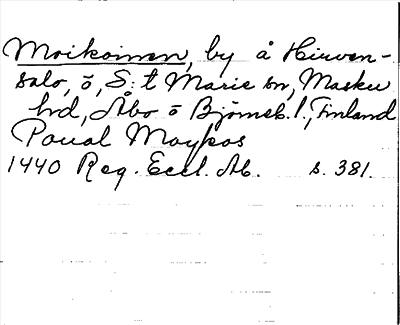 Moikoinen, by å Hirven-
salo, ö, S:t Marie sn, Masku
hrd, Åbo ö Björneb. l., Finland
Paual Moykos
1440 Reg. Eccl. Ab. s. 381.